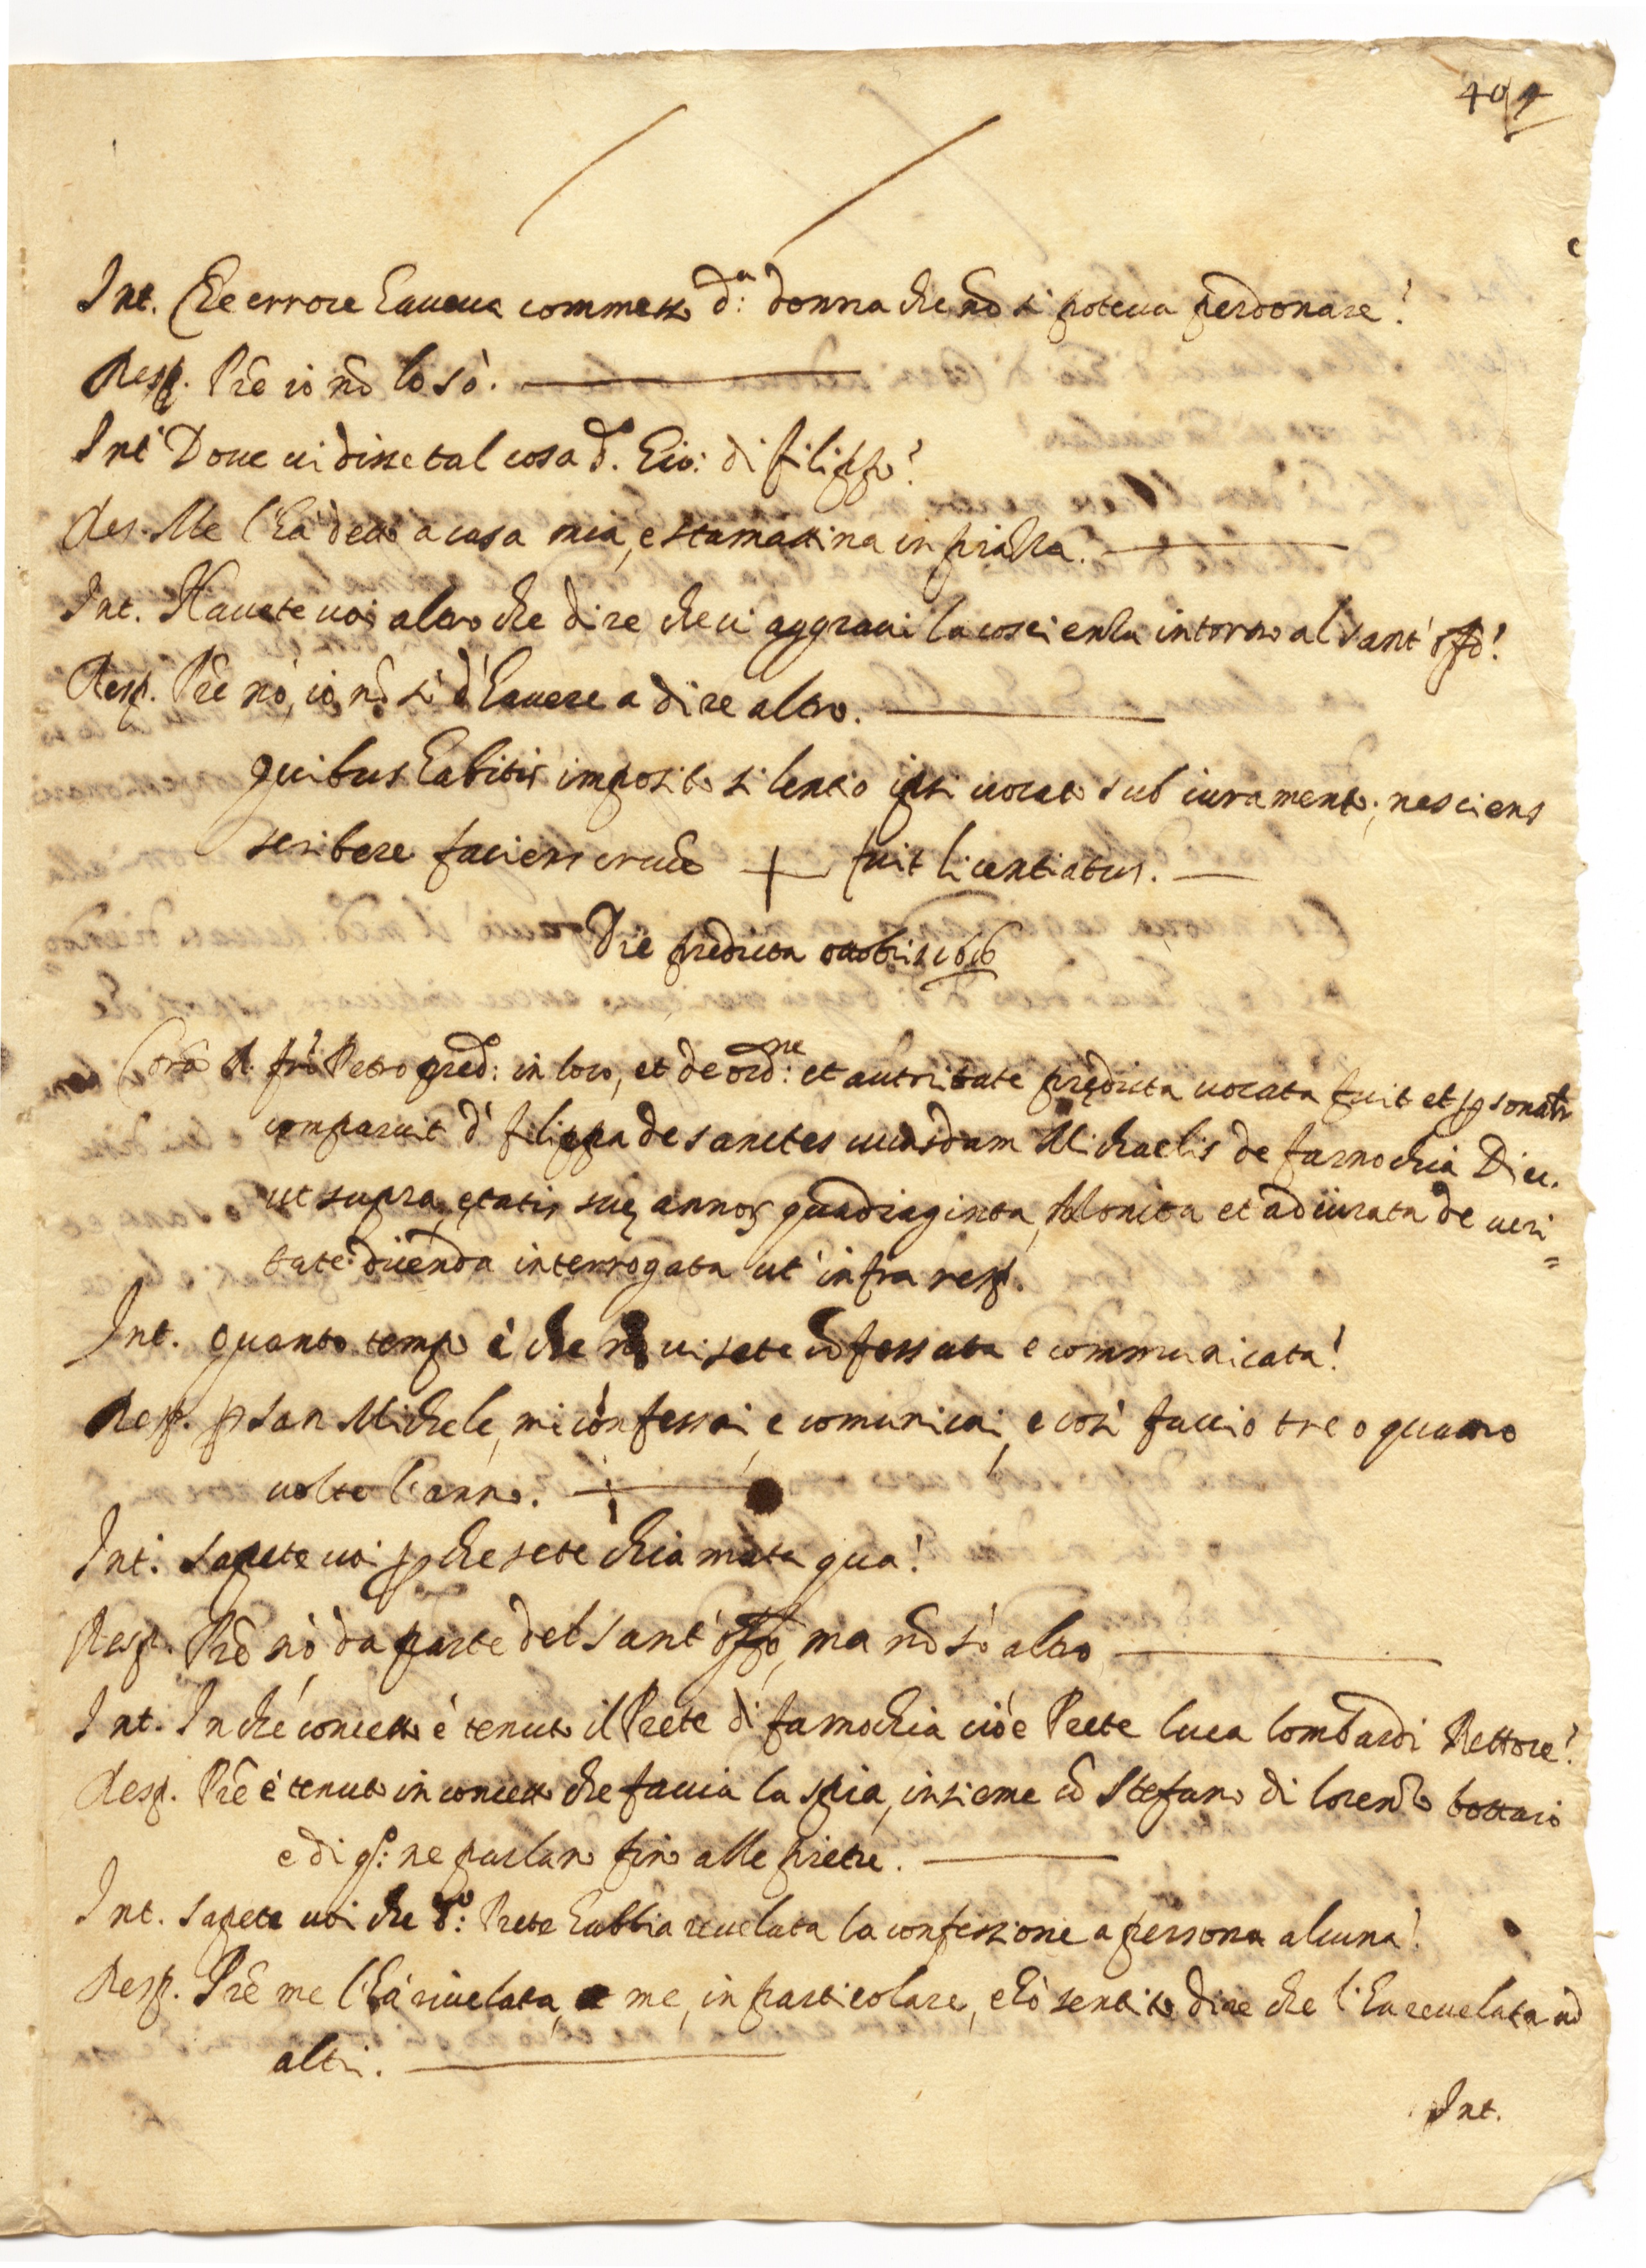 409
Int. Che errore haueua commesso d.ª: donna che nõ si poteua perdonare?
Resp. Prẽ io nõ lo sò.
Int. Doue ui disse tal cosa d.º Gio: di filippo?
Res. Me l'hà detto a casa mia, e stamattina in piazza.
Int. Hauete uoi altro che dire che ui aggraui la coscienza intorno al sant' offº?
Resp. Prẽ nò, io nõ sò d'hauere a dire altro.
Quibus habitis imposito silentio ipsi uocato sub iuramento, nesciens
scribere faciens crucẽ + fuit licentiatus.
Die predicta ottobris 1616
Corã R. frẽ Petro pred: in loco, et de ordne: et autoritate predicta uocata fuit et psonalr
comparuit dª filippa de sanctes cuiusdam Michaelis de farnochia Diec.
ut supra, etatis suę annoꝝ quadraginta, Monita et adiurata de ueri=
tate dicenda interrogata ut infra resp.
Int. Quanto tempo è che nõ ui sete cõfessata e communicata?
Resp. p san Michele, mi confessai e comunicai, e così faccio tre o quattro
uolte l'anno.
Int. Sapete uoi pche sete chiamata qua?
Resp. Prẽ nò da parte del sant'offº, ma nõ sò altro
Int. In che concetto è tenuto il Prete di farnochia cioè Prete luca lombardi Rettore?
Resp. Prẽ è tenuto in concetto che faccia la spia, insieme cõ Stefano di lorenzo bottaio
e di qº: ne parlano fino alle pietre.
Int. Sapete uoi che d.º: Prete habbia reuelata la confessione a persona alcuna?
Resp. Prẽ me l'hà riuelata, a me, in particolare, e hò sentito dire che l'ha reuelata ad
altri.
Int.